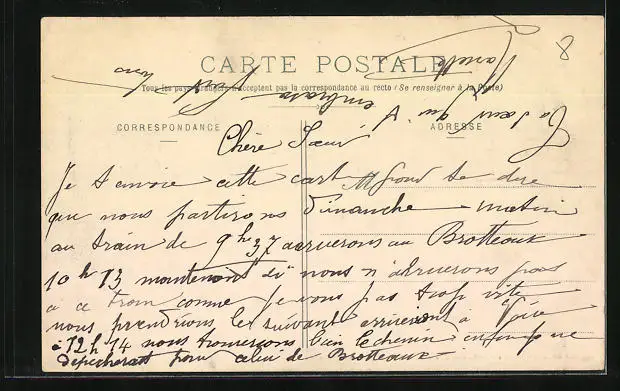 8
CARTE POSTALE
Tous les pays étrangers n'acceptent pas la correspondance au recto (Se renseigner à la Poste)
CORRESPONDANCE
ADRESSE
Chère Sœur
Je t'envoie cette cart te dire
que nous partirons dimanche matin
au train de 9 h 37 arriverons au Brotteaux
10 h 13 maintenant si nous n'arriverons pas
à ce train comme je vous pas trop vite
nous prendrions le suivant arriveront à
à 12 h 14 nous trouverons bien le chemin
dépecherait pour celui de Brotteaux
Ta Sœur qui t'
embrasse